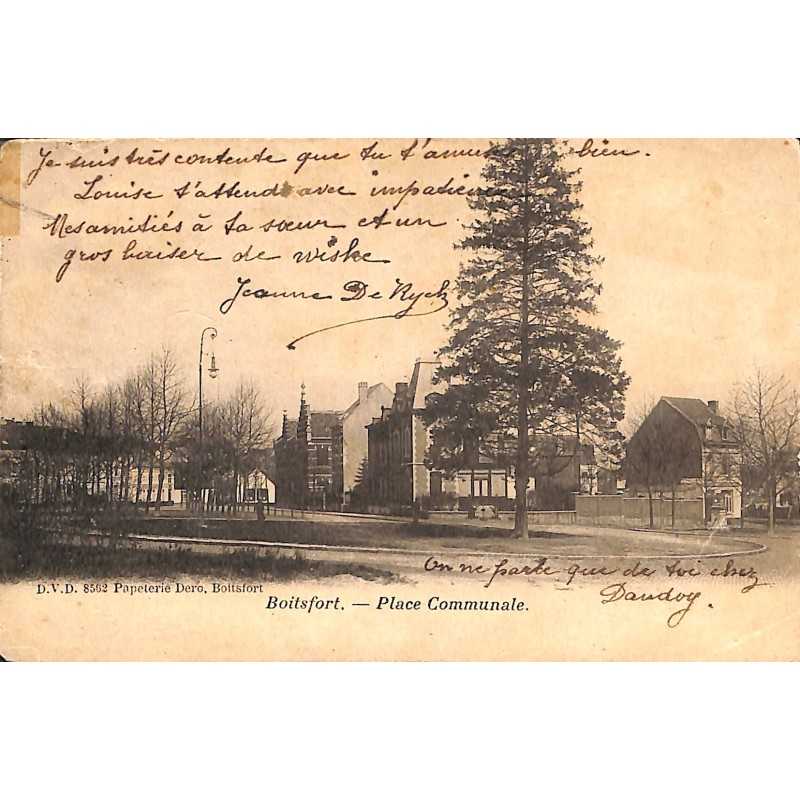 Je suis très contente que tu t'amuses bien.
Louise t'attend avec impatience
Mes amitiés à ta sœur et un
gros baiser de wiske
Jeanne De Ryck
On ne parle que de toi chez
Dandoy.
D.V.D. 8562 Papeterie Dero, Boitsfort
Boitsfort. — Place Communale.